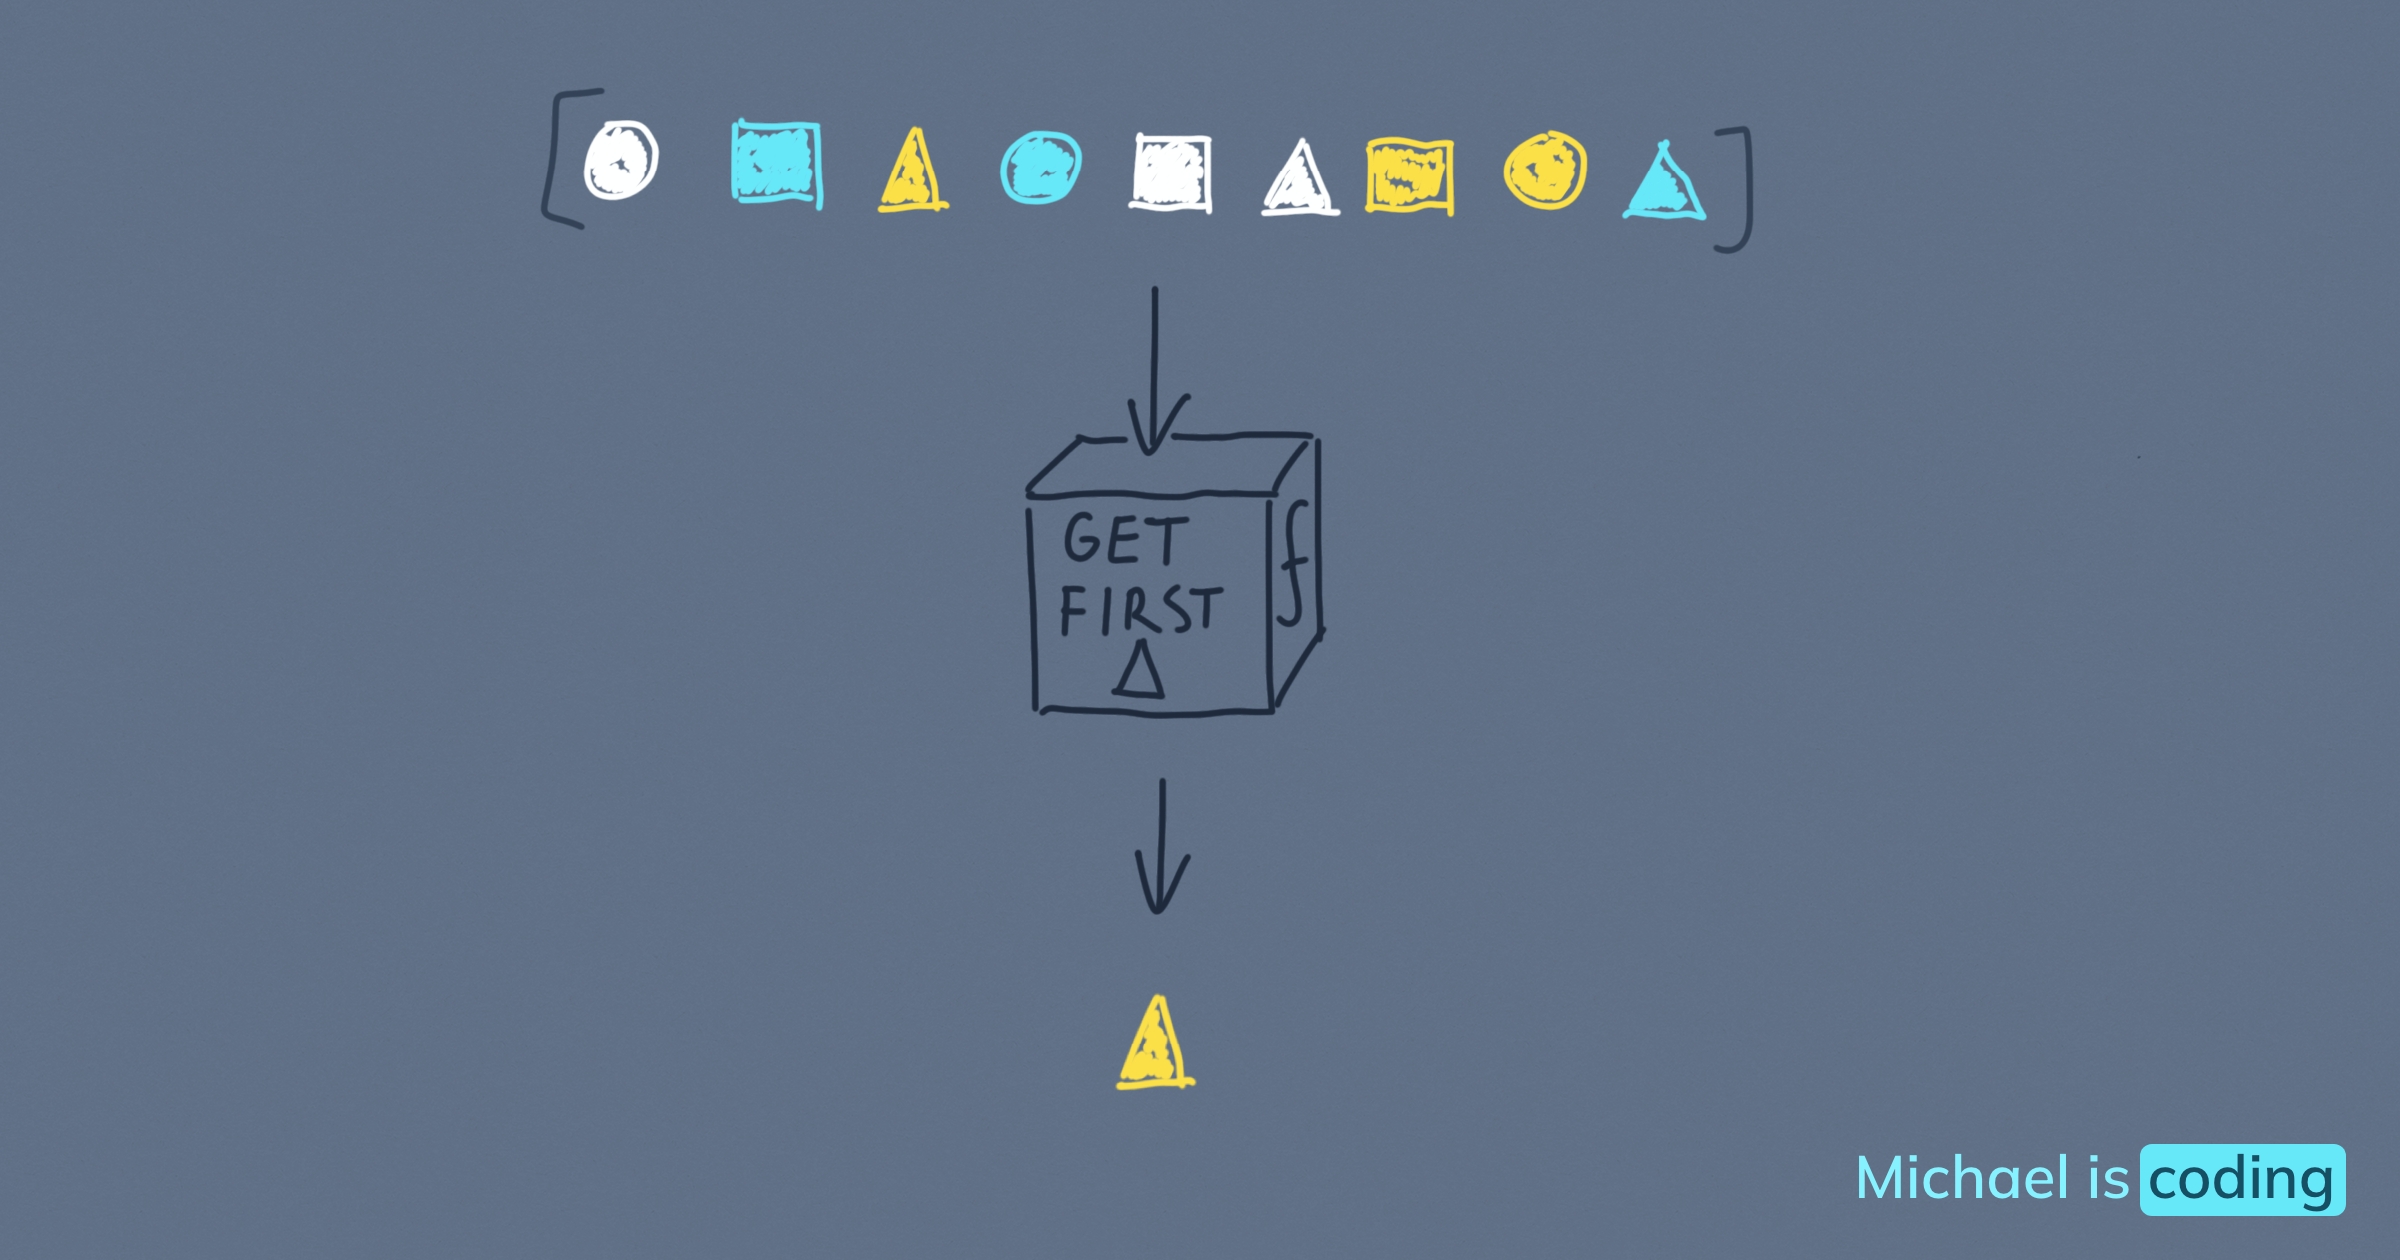 GET
f
FIRST
Michael is coding